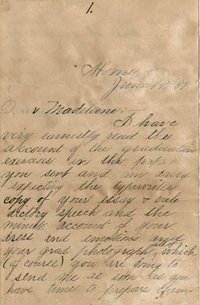 1.
Home
June 18
Dear Madeline:
I have
very earnestly read the
account of the graduation
exercises in the paper
you sent and am only
expecting the typewritten
copy of your essay &
dictory speech and the
minute account of your
dress and emotions and
your grad photograph, which
(of course) you are going to
send me as soon as you
have time to prepare them